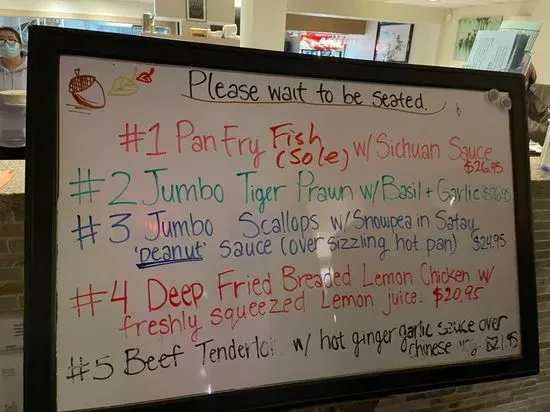 Please wait to be seated.
#1 Pan Fry Fish (Sole) w/ Sichuan Sauce $26.95
#2 Jumbo Tiger Prawn w/ Basil + Garlic
#3 Jumbo Scallops w/ Snowpea in Satay
'peanut' sauce (over sizzling hot pan) $24.95
#4 Deep Fried Breaded Lemon Chicken w/
freshly squeezed Lemon juice. $20.95
#5 Beef w/ hot ginger garlic sauce over
chinese $21.95